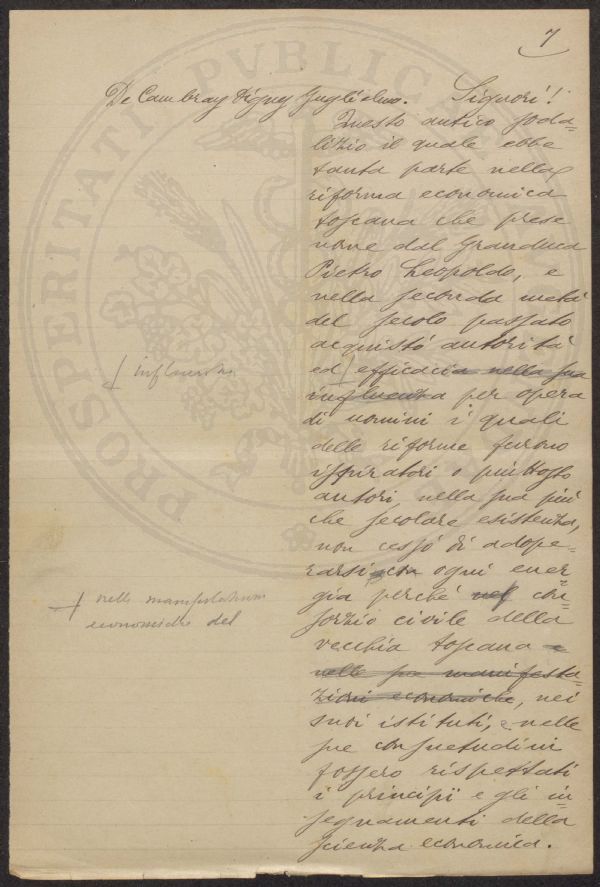 7
De Cambray Digny Guglielmo. Signori!
Questo antico soda-
lizio il quale ebbe
tanta parte nella
riforma economica
toscana che prese
nome dal Granduca
Pietro Leopoldo, e
nella seconda metà
del secolo passato
acquistò autorità
influenza
ed efficacia nella sua
influenza per opera
di uomini i quali
delle riforme furono
ispiratori o piuttosto
autori, nella sua più
che secolare esistenza,
non cessò di adope-
rarsi con ogni ener-
nelle manifestazioni
economiche del
gia perché nel con-
sorzio civile della
vecchia toscana
nelle sue manifesta-
zioni economiche, nei
suoi istituti, e nelle
sue consuetudini
fossero rispettati
i principï e gli in-
segnamenti della
scienza economica.
PROSPERITATI PVBLICAE